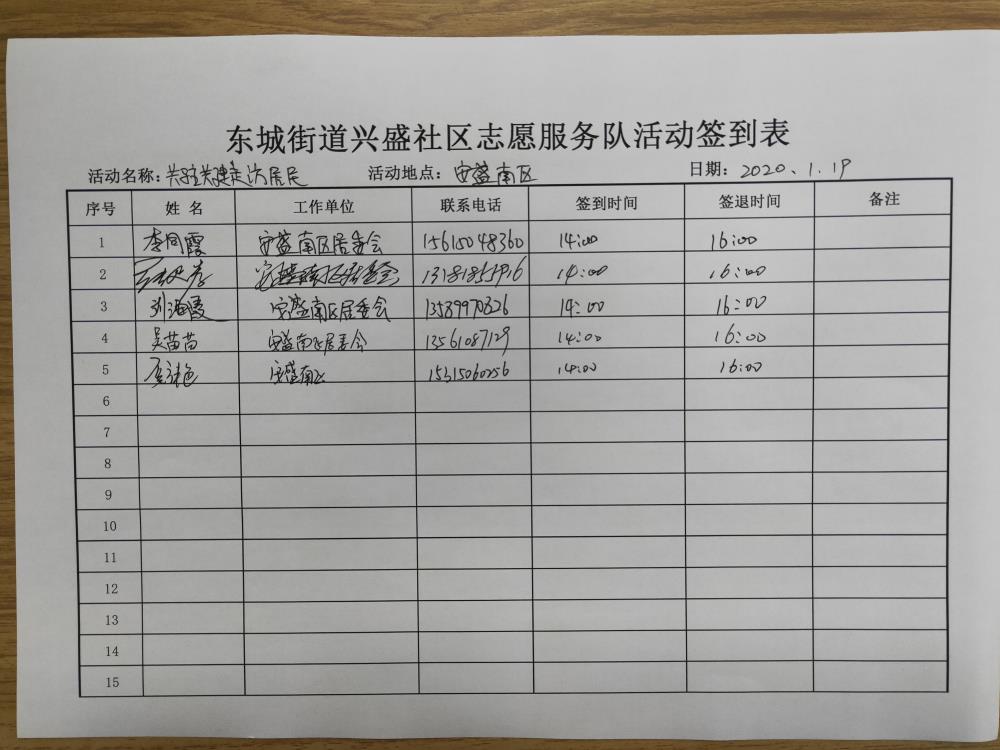 东城街道兴盛社区志愿服务队活动签到表
活动名称: 走访居民 活动地点: 安盛南区 日期: 2020、1.19
序号 姓名 工作单位 联系电话 签到时间 签退时间 备注
1 李同霞 安盛南区居委会 15615048360 14:00 16:00
2 安盛南区居委会 13181855916 14:00 16:00
3 刘海霞 安盛南区居委会 14:00 16:00
4 吴苗苗 安盛南区居委会 13561087129 14:00 16:00
5 安盛南区 14:00 16:00
6
7
8
9
10
11
12
13
14
15